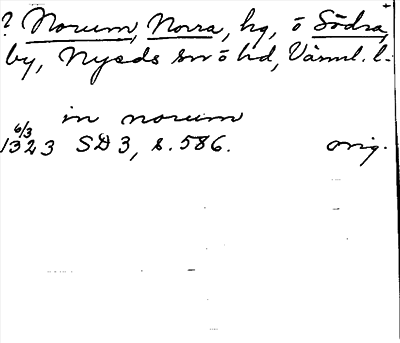 ? Norum, Norra, hg, o Södra,
by, Nyeds sn o hd, Värml. l.
in norum
6/3
1323 SD 3, s. 586. orig.